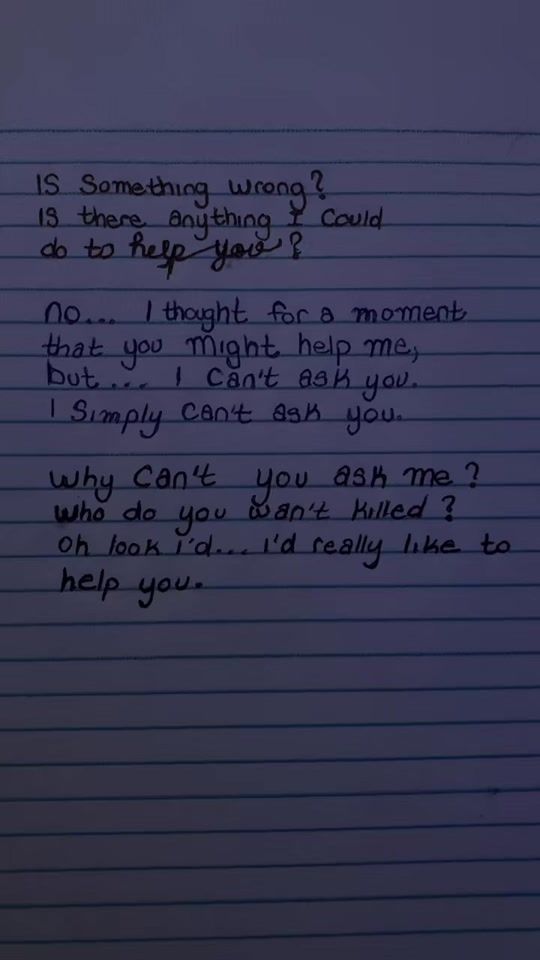 Is something wrong?
Is there anything I could
do to help you?
no... I thought for a moment
that you might help me,
but... I can't ask you.
I simply can't ask you.
why can't you ask me?
who do you wan't killed?
oh look i'd... i'd really like to
help you.